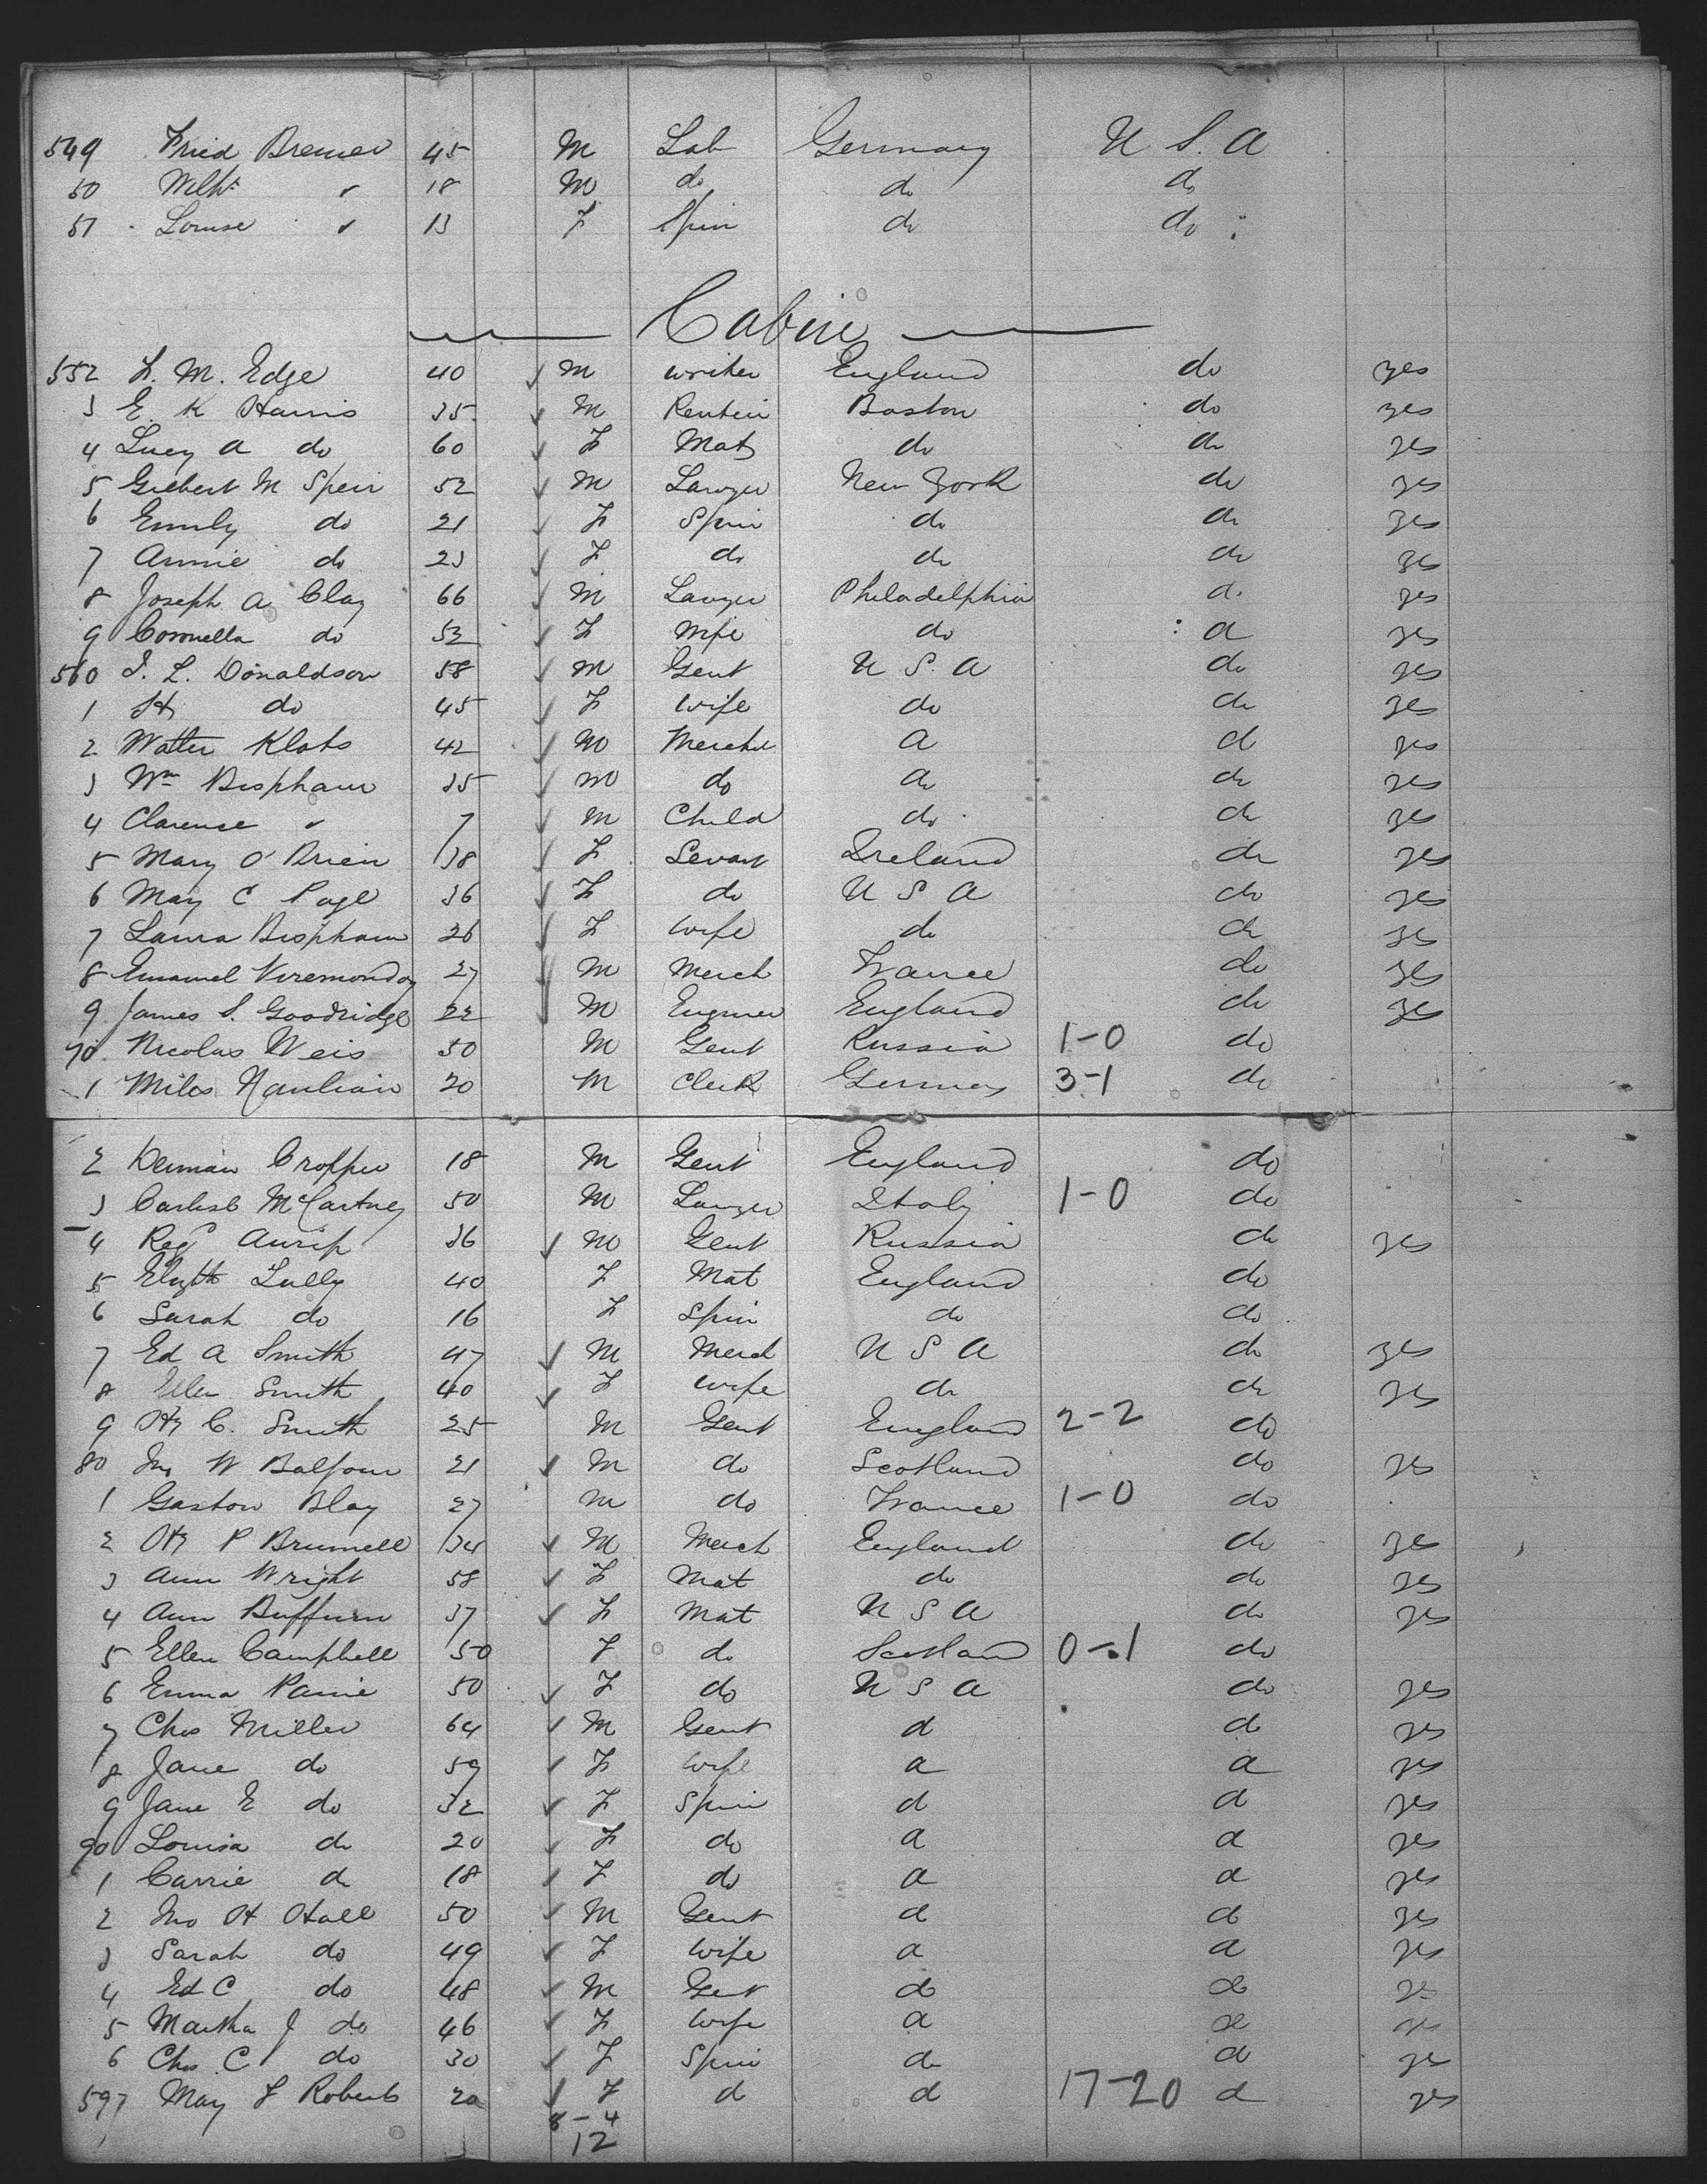 549 Fried Bremer 45 M Lab Germany U S. A
50 Wilh. " 18 M do do do
51 Louise " 13 F Spin do do
Cabin
552 F. M. Edge 40 M writer England do yes
3 E. K Harris 35 M Boston do yes
4 Lucy A do 60 F Mat do do yes
5 Gilbert M Speir 52 M Lawyer New York do yes
6 Emily do 21 F Spin do do yes
7 Annie do 23 F do do do yes
8 Joseph A Clay 66 M Lawyer Philadelphia do yes
9 do 52 F Wife do d yes
560 J. L. Donaldson 58 M Gent U S. A do yes
1 H do 45 F Wife do do yes
2 Walter Klots 42 M Mercht d d yes
3 Wm Bispham 35 M do do do yes
4 Clarence " 7 M Child do do yes
5 Mary O'Brien 38 F Servant Ireland do yes
6 Mary C Page 36 F do U S A do yes
7 Laura Bispham 26 F Wife do do yes
8 Emanuel 27 M Merch France do yes
9 James S. Goodridge 22 M Engineer England do yes
70 Nicolas Weis 50 M Gent Russia 1-0 do
1 Miles 20 M Clerk Germany 3-1 do
2 Cropper 18 M Gent England do
3 Carlisle McCartney 50 M Lawyer Italy 1-0 do
4 Reg 36 M Gent Russia do yes
5 Elizth 40 F Mat England do
6 Sarah do 16 F Spin do do
7 Ed A Smith 47 M Merch U S A do yes
8 Ellen Smith 40 F Wife do do yes
9 Hy C. Smith 25 M Gent England 2-2 do
80 Jno W Balfour 21 M do Scotland do yes
1 Gaston Blay 27 M do France 1-0 do
2 Hy P Brumell 34 M Merch England do yes
3 Ann Wright 58 F Mat do do yes
4 Ann Buffum 37 F Mat U S A do yes
5 Ellen Campbell 50 F do Scotland 0-1 do
6 Emma Paine 50 F do U S A do yes
7 Chas Miller 64 M Gent d do yes
8 Jane do 59 F Wife d d yes
9 Jane E do 32 F Spin d d yes
90 Louisa do 20 F do d d yes
1 Carrie d 18 F do d d yes
2 Jno H Hall 50 M Gent d d yes
3 Sarah do 49 F Wife d d yes
4 Ed C do 48 M Gent d do yes
5 Martha J do 46 F Wife d d yes
6 Chas C do 30 F Spin d d yes
597 May F Roberts 20 F d d 17-20 d yes
8-4
12